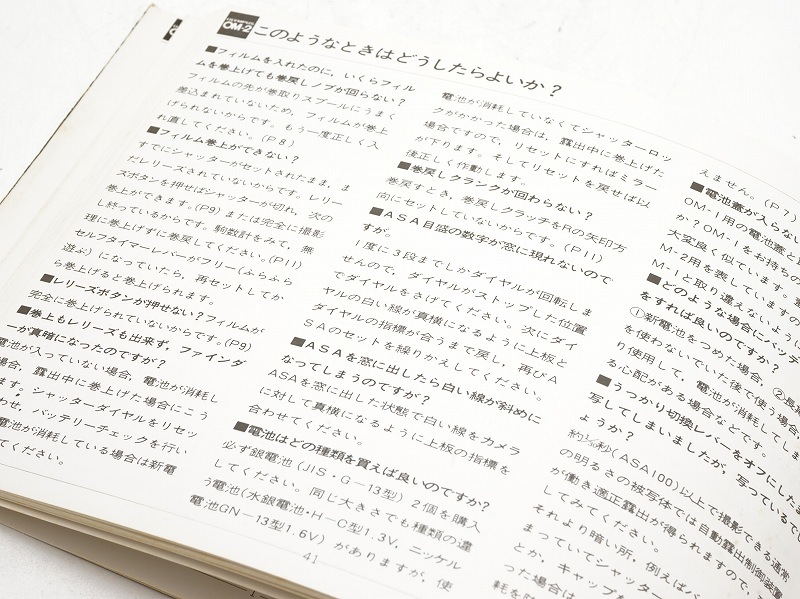 OLYMPUS
OM-2
このようなときはどうしたらよいか？
■フィルムを入れたのに，いくらフィル
ムを巻上げても巻戻しノブが回らない？
フィルムの先が巻取りスプールにうまく
巻込まれていないため，フィルムが巻上
げられないからです。もう一度正しく入
れ直してください。(P 8 )
■フィルム巻上ができない？
すでにシャッターがセットされたまま，ま
だレリーズされていないからです。レリー
ズボタンを押せばシャッターが切れ，次の
巻上ができます。(P9) または完全に撮影
し終っているからです。駒数計をみて，無
理に巻上げずに巻戻してください。(P11)
セルフタイマーレバーがフリー(ふらふら
遊ぶ）になっていたら，再セットしてか
ら巻上げると巻上げられます。
■レリーズボタンが押せない？フィルムが
完全に巻上げられていないからです。(P9)
■巻上もレリーズも出来ず，ファインダ
ーが真暗になったのですが？
電池が入っていない場合，電池が消耗し
場合，露出中に巻上げた場合にこう
ます。シャッターダイヤルをリセッ
わせ，バッテリーチェックを行い
電池が消耗している場合は新電
てください。
電池が消耗していなくてシャッターロッ
クがかかった場合は，露出中に巻上げた
場合ですので，リセットにすればミラー
が下ります。そしてリセットを戻せば以
後正しく作動します。
■巻戻しクランクが回わらない？
巻戻すとき，巻戻しクラッチをRの矢印方
向にセットしていないからです。(P11)
■ＡＳＡ目盛の数字が窓に現れないので
すが。
1度に3段までしかダイヤルが回転しま
せんので，ダイヤルがストップした位置
でダイヤルをさげてください。次にダイ
ヤルの白い線が真横になるように上板と
ダイヤルの指標が合うまで戻し，再びＡ
ＳＡのセットを繰りかえしてください。
■ＡＳＡを窓に出したら白い線が斜めに
なってしまうのですが？
ASAを窓に出した状態で白い線をカメラ
に対して真横になるように上板の指標を
合わせてください。
■電池はどの種類を買えば良いのですか？
必ず銀電池（JIS・G－13型）2個を購入
してください。同じ大きさでも種類の違
う電池（水銀電池・H－C型1.3V，ニッケル
電池GN－13型1.6V）がありますが，使
えません。(P.7 )
■電池蓋が入らない
OM-1用の電池蓋と
か？OM-1をお持ちの
大変良く似ています。
M-2用を表していますの
M-1と取り違えないよう
■どのような場合にバッテ
をすれば良いのですか？
①新電池をつめた場合，②長
を使わないでいた後で使う場
り使用して，電池が消耗してし
る心配がある場合などです。
■うっかり切換レバーをオフにしたま
写してしまいましたが，写っているで
ょうか？
約1/30秒(ASA100)以上で撮影できる通常
の明るさの被写体では自動露出制御装置
が働き適正露出が得られますので，
してみてください。
それより暗い所，例えばバ
まっていてシャッター
とか，キャップを
った場合は
耗を防
41